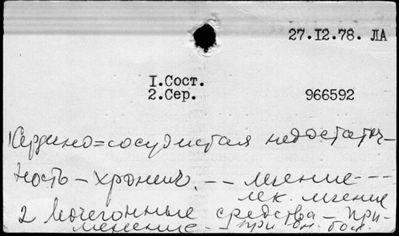 27.I2.78. ЛА
I.Сост.
2.Сер.
966592
1 Сердечно=сосудистая недостаточ-
ность – хронич. -- лечение ---
лек. лечение
2 Мочегонные средства – при-
менение – при